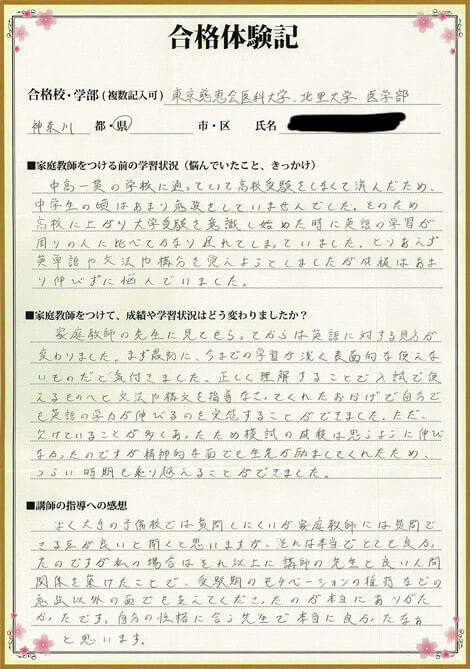 合格体験記
合格校・学部(複数記入可) 東京慈恵会医科大学、北里大学 医学部
神奈川 都・県 市・区 氏名
■家庭教師をつける前の学習状況（悩んでいたこと、きっかけ）
中高一貫の学校に通っていて高校受験をしなくて済んだため、
中学生の頃はあまり勉強をしていませんでした。そのため
高校に上がり大学受験を意識し始めた時に英語の学習が
周りの人に比べてかなり遅れてしまっていました。とりあえず
英単語や文法や構文を覚えようとしましたが成績はあま
り伸びずに悩んでいました。
■家庭教師をつけて、成績や学習状況はどう変わりましたか？
家庭教師の先生に見てもらってからは英語に対する見方が
変わりました。まず最初に、今までの学習が浅く表面的な使えな
いものだと気付きました。正しく理解することで入試で使
えるものへと文法や構文を指導なさってくれたおかげで自分で
も英語の学力が伸びるのを実感することができました。ただ、
欠けていることが多くあったため模試の成績は思うように伸び
なかったのですが精神的な面でも先生が励ましてくれたため、
つらい時期も乗り越えることができました。
■講師の指導への感想
よく大手の予備校では質問しにくいが家庭教師には質問で
きる点が良いと聞くと思いますが、それは本当でとても良かっ
たのですが私の場合はそれ以上に講師の先生と良い人間
関係を築けたことで、受験期のモチベーションの維持などの
勉強以外の面でも支えてくださったのが本当にありがた
かったです。自分の性格に合う先生で本当に良かったなぁ
と思います。